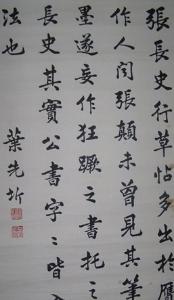 張長史行草帖多出於贗
作人间張顛未曾見其筆
墨遂妄作狂蹶之書托之
長史其實公書字〻皆入
法也
葉先圻